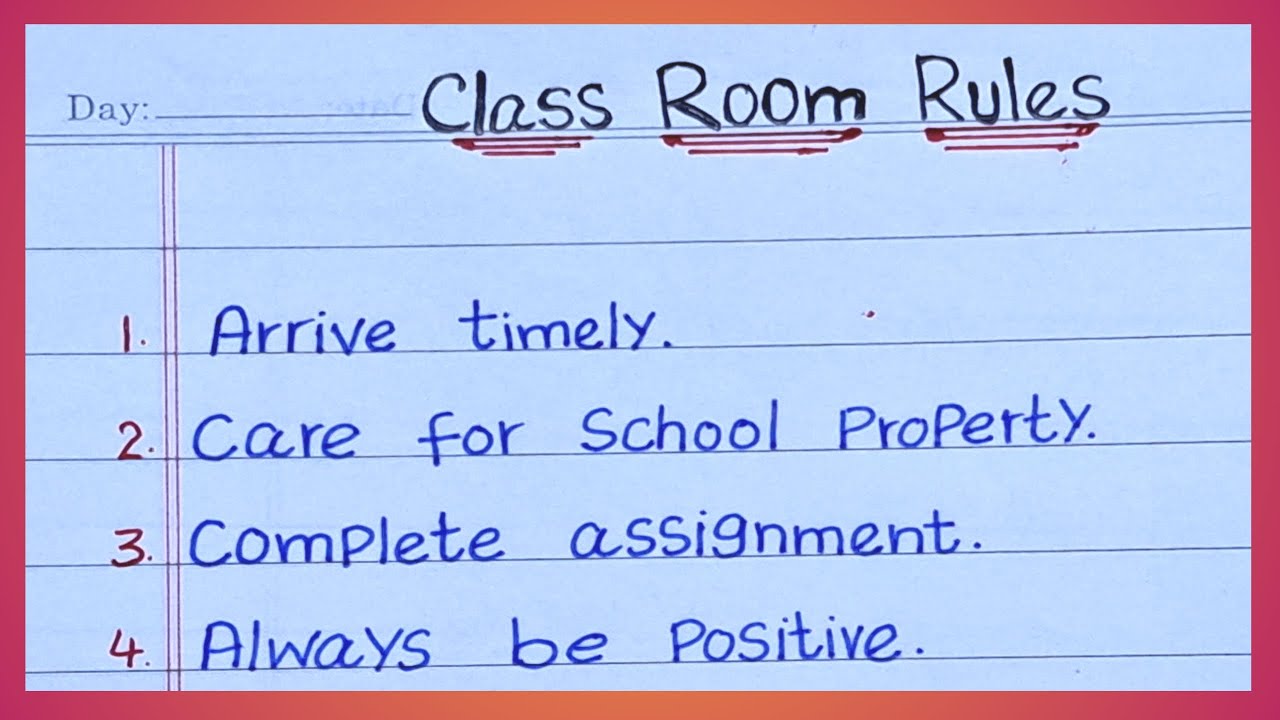 Day: Class Room Rules
1. Arrive timely.
2. Care for School Property.
3. Complete assignment.
4. Always be Positive.